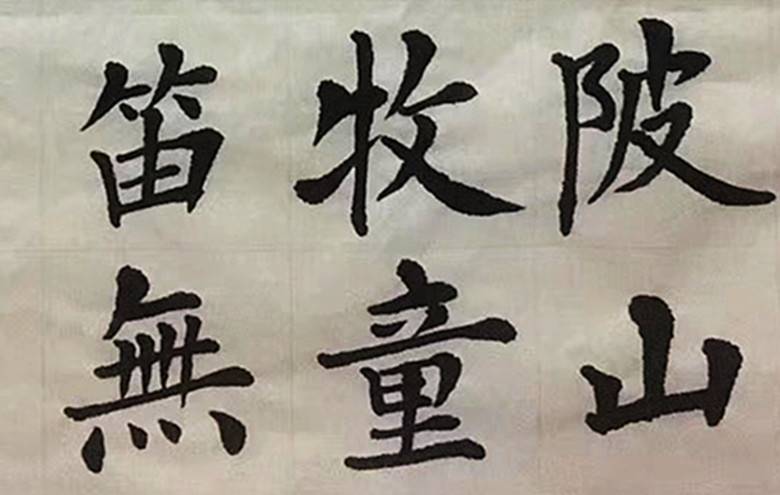 陂山
牧童
笛無